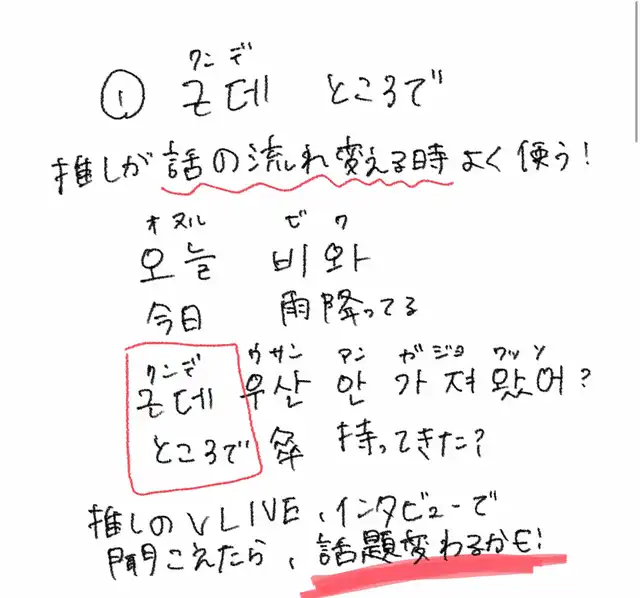 クンデ
① 근데 ところで
推しが話の流れ変える時よく使う!
オヌル ビ ワ
오늘 비 와
今日 雨降ってる
クンデ ウサン アン ガジョ ワッソ
근데 우산 안 가져 왔어?
ところで 傘 持ってきた?
推しのVLIVE、インタビューで
聞こえたら、話題変わるかも!